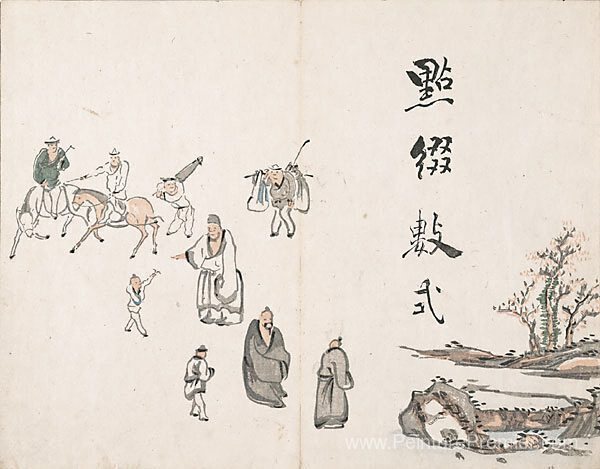 點綴數式
www.PeinturePremier.com